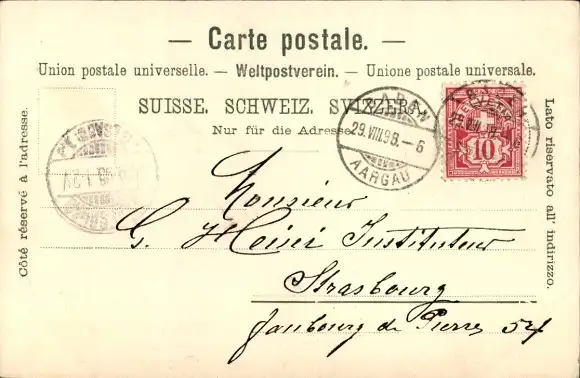 — Carte postale. —
Union postale universelle. — Weltpostverein. — Unione postale universale.
SUISSE. SCHWEIZ. SVIZZERA.
Nur für die Adresse.
Côté réservé à l'adresse.
Lato riservato all' indirizzo.
29.VIII.98.–6
AARGAU
10
Monsieur
G. Heini Instituteur
Strasbourg
faubourg de Pierres 54